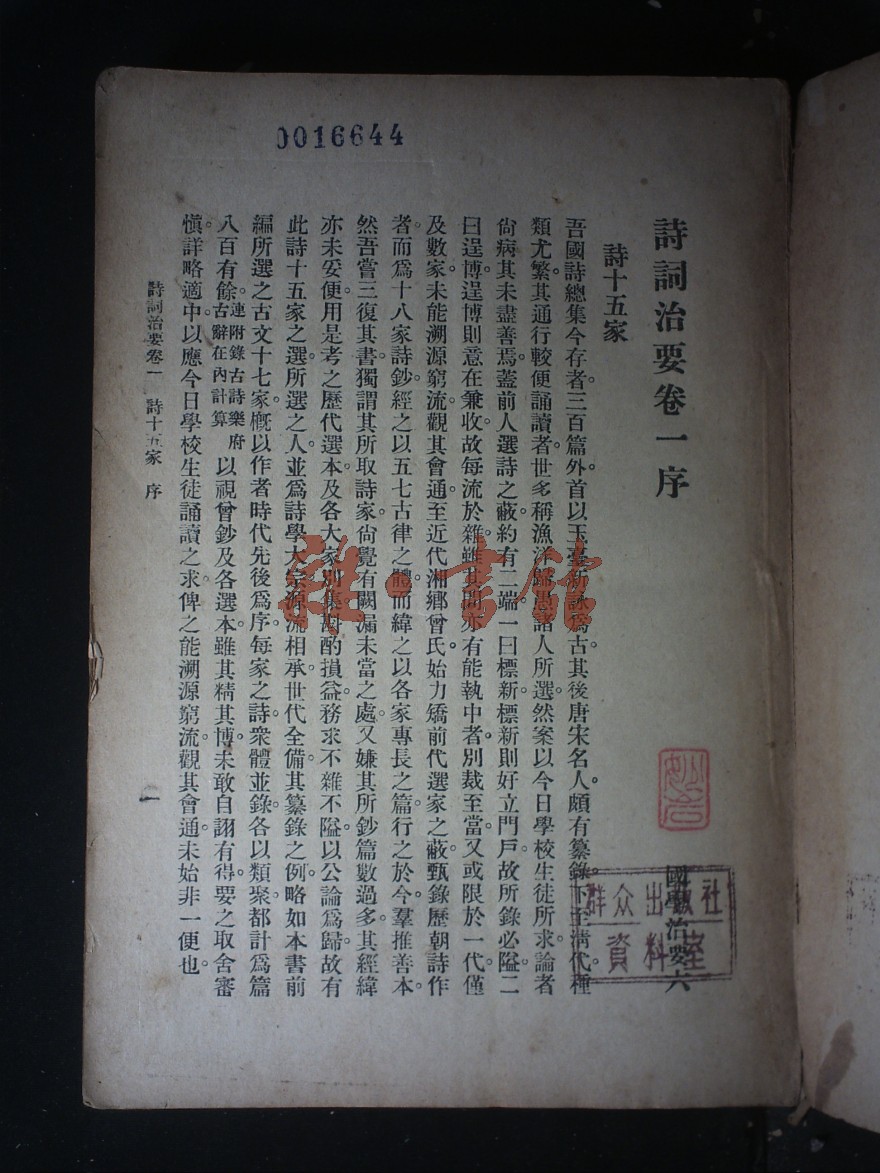 0016644
詩詞治要卷一序
國學治要六
詩十五家
吾國詩總集今存者。三百篇外。首以玉臺新詠爲古。其後唐宋名人。頗有纂錄。下至淸代。種
類尤繁。其通行較便誦讀者。世多稱漁洋歸愚諸人所選。然案以今日學校生徒所求。論者
尙病其未盡善焉。蓋前人選詩之蔽。約有二端。一曰標新。標新則好立門戶。故所錄必隘。二
曰逞博。逞博則意在兼收。故每流於雜。雖其間亦有能執中者。別裁至當。又或限於一代。僅
及數家。未能溯源窮流。觀其會通。至近代湘鄉曾氏。始力矯前代選家之蔽。甄錄歷朝詩作
者。而爲十八家詩鈔。經之以五七古律之體。而緯之以各家專長之篇。行之於今。羣推善本。
然吾嘗三復其書。獨謂其所取詩家。尙覺有闕漏未當之處。又嫌其所鈔篇數過多。其經緯
亦未妥便。用是考之歷代選本。及各大家別集。斟酌損益。務求不雜不隘。以公論爲歸。故有
此詩十五家之選。所選之人。並爲詩學大宗。源流相承。世代全備。其纂錄之例。略如本書前
編所選之古文十七家。槪以作者時代先後爲序。每家之詩。衆體並錄。各以類聚。都計爲篇
八百有餘。連附錄古詩樂府古辭在內計算以視曾鈔及各選本。雖其精其博。未敢自詡有得。要之取舍審
愼。詳略適中。以應今日學校生徒誦讀之求。俾之能溯源窮流。觀其會通。未始非一便也。
詩詞治要卷一 詩十五家 序
一
群众出版社
資料室